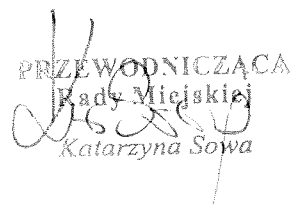 PRZEWODNICZĄCA
Rady Miejskiej
Katarzyna Sowa